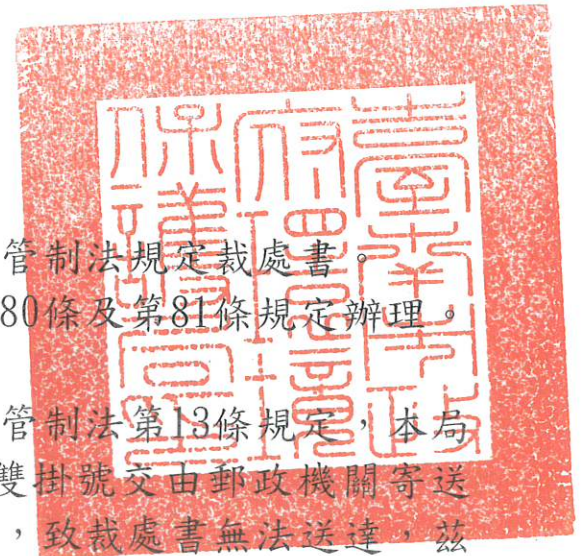 臺南市政
府環境
保護局
管制法規定裁處書。
80條及第81條規定辦理。
管制法第13條規定,本局
雙掛號交由郵政機關寄送
,致裁處書無法送達,茲